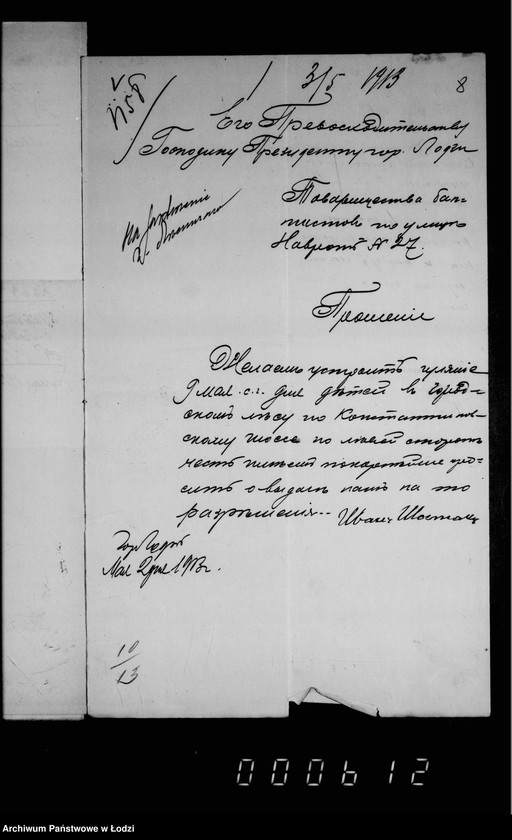 3/5 1913
8
Его Превосходительству
Господину Президенту гор. Лодзи
Товарищества бап-
тистовъ по улицѣ
Навротъ № 27.
Прошеніе
Желаемъ устроить гуляніе
9 мая с.г. для дѣтей в город-
скомъ лѣсу по Константинов-
скому шоссе по лѣвой сторонѣ
честь имѣемъ покорнѣйше про-
сить о выдачѣ намъ на то
разрѣшенія. Иванъ
гор. Лодзь
Мая 2 дня 1913 г.
10/13
000612
Archiwum Państwowe w Łodzi